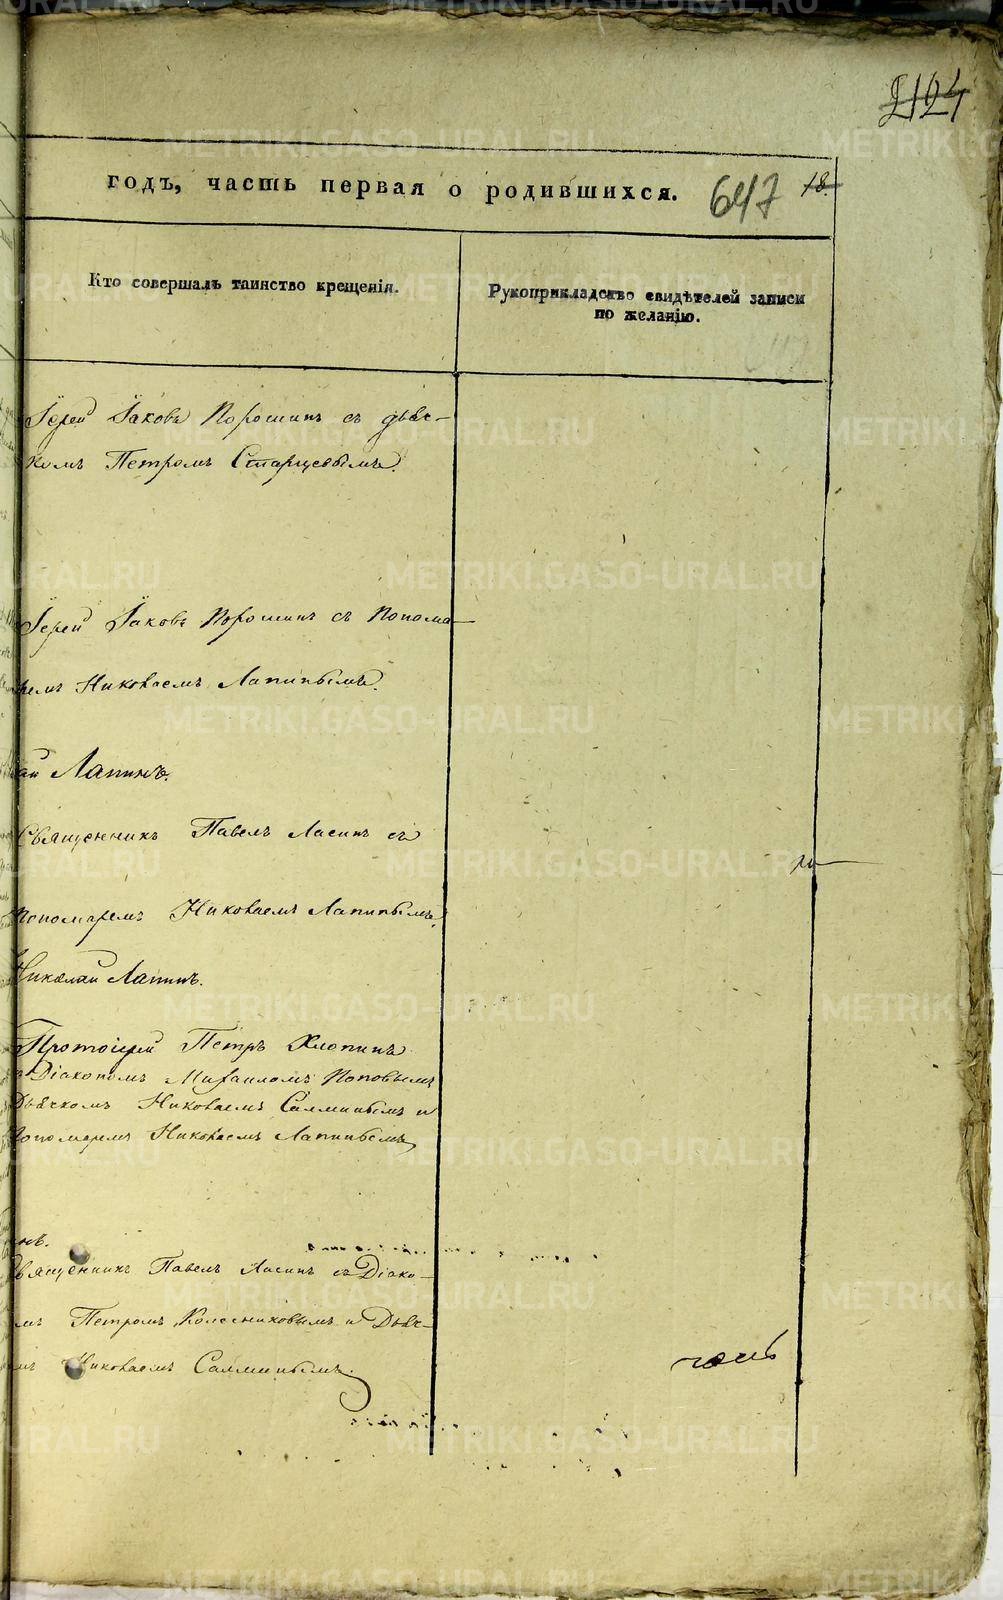 2124
годъ, часть первая о родившихся.
647
18.
Кто совершалъ таинство крещенія.
Рукоприкладство свидѣтелей записи
по желанію.
Іерей Іаковъ Порошинъ съ дьяч-
комъ Петромъ Старцевымъ.
Іерей Іаковъ Порошинъ съ Понома-
ремъ Николаемъ Лапинымъ.
Лапинъ.
Священникъ Павелъ Ласинъ съ
Пономаремъ Николаемъ Лапинымъ.
Николай Лапинъ.
Протоіерей Петръ Хлопинъ
Діакономъ Михаиломъ Поповымъ
Дьячкомъ Николаемъ Салминымъ и
Пономаремъ Николаемъ Лапинымъ
Священникъ Павелъ Ласинъ съ Діако-
мъ Петромъ Колесниковымъ и Дьяч-
мъ Николаемъ Салминымъ.
METRIKI.GASO-URAL.RU